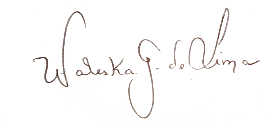 Waleska G. de Lima